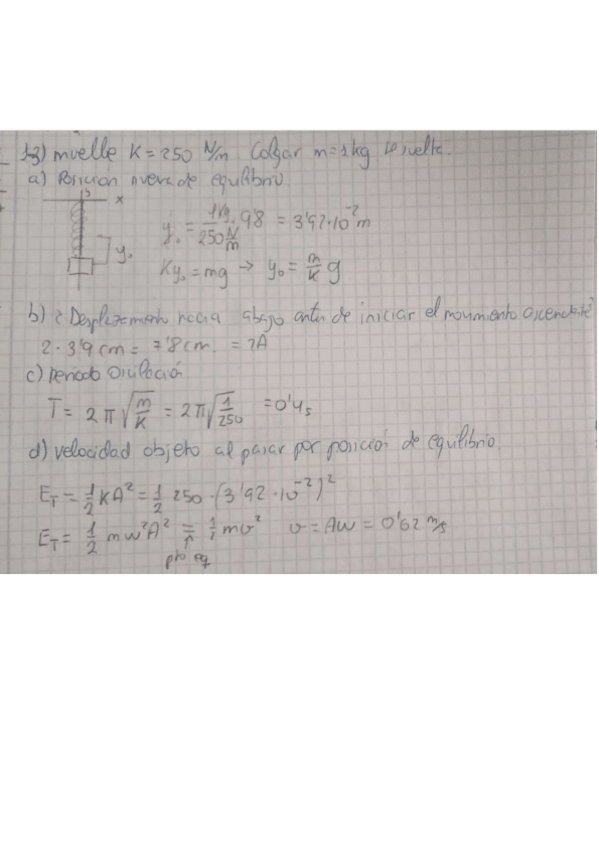 13) muelle K = 250 N/m Colgar m = 1kg se suelta.
a) Posición nueva de equilibrio.
x
y₀ = 1kg · 9'8 / 250 N/m = 3'92·10⁻² m
y₀
Ky₀ = mg → y₀ = m/K g
b) ¿Desplazamiento hacia abajo antes de iniciar el movimiento ascendente?
2 · 3'9 cm = 7'8 cm. = 2A
c) periodo Oscilación
T = 2π√(m/K) = 2π√(1/250) = 0'4 s
d) velocidad objeto al pasar por posición de equilibrio.
E_T = 1/2 KA² = 1/2 250 · (3'92 · 10⁻²)²
E_T = 1/2 mw²A² = 1/2 mv² v = Aw = 0'62 m/s
pto eq